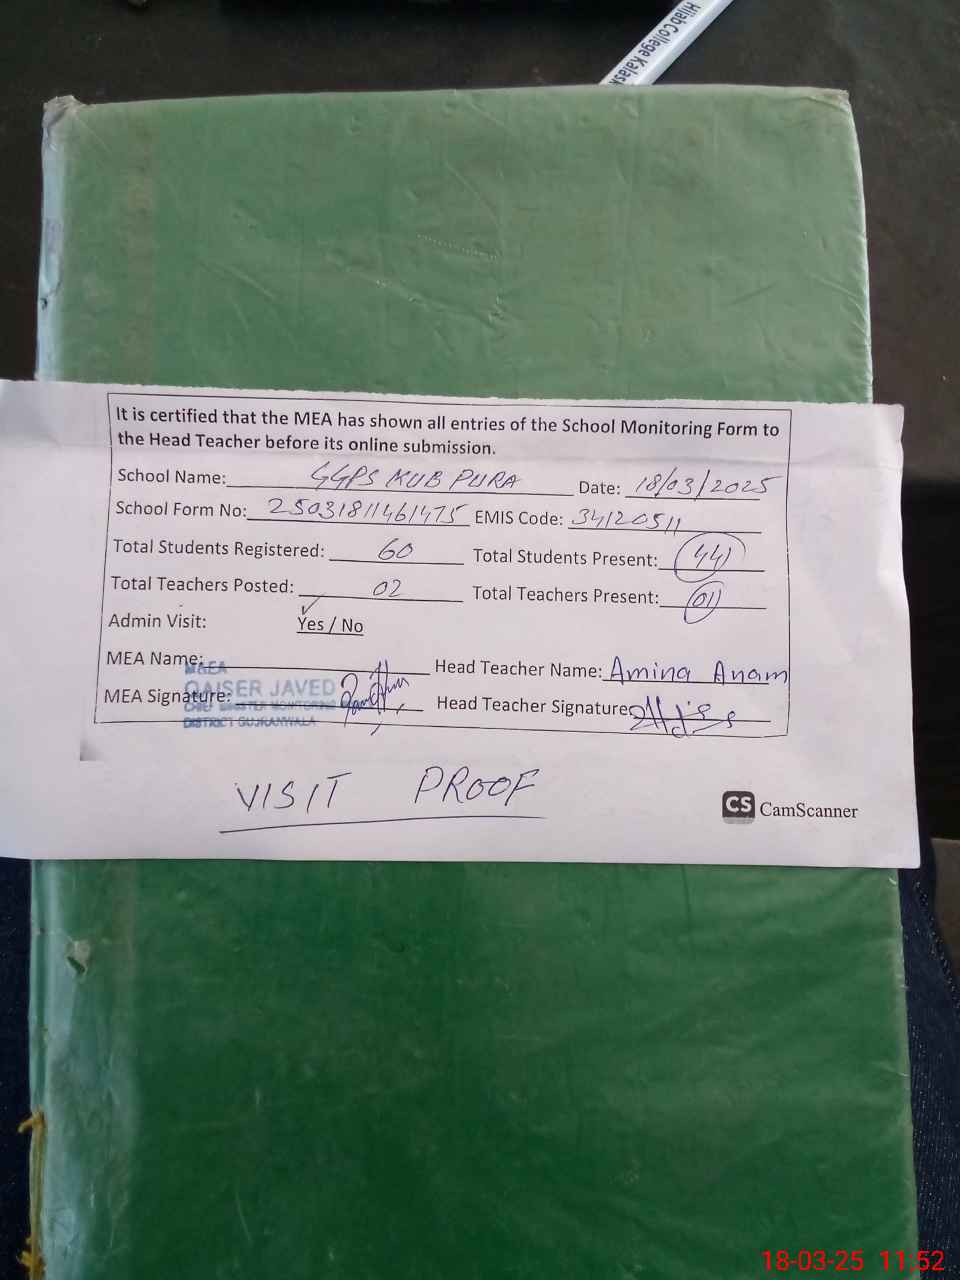 Hijab College Kalask
It is certified that the MEA has shown all entries of the School Monitoring Form to
the Head Teacher before its online submission.
School Name: GGPS KUB PURA Date: 18/03/2025
School Form No: 25031811461475 EMIS Code: 34120511
Total Students Registered: 60 Total Students Present: 44
Total Teachers Posted: 02 Total Teachers Present: 01
Admin Visit: Yes / No
MEA Name: Head Teacher Name: Amina Anam
M&EA
MEA Signature: Head Teacher Signature
QAISER JAVED
CHIEF MINISTER MONITORING
DISTRICT GUJRANWALA
VISIT PROOF
CS CamScanner
18-03-25 11:52